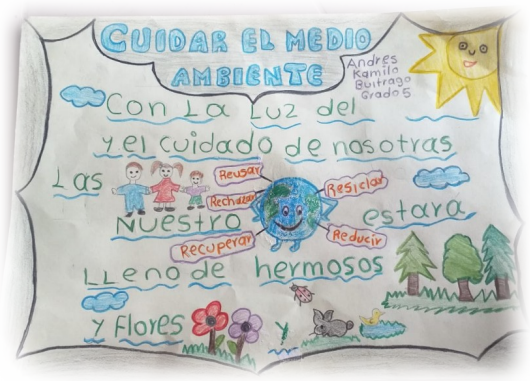 CUIDAR EL MEDIO
AMBIENTE
Andres
Kamilo
Buitrago
Grado 5
Con La Luz del
y el cuidado de nosotras
Las
Reusar
Rechazar
Resiclar
Nuestro
estara
Recuperar
Reducir
LLeno de hermosos
y Flores
y